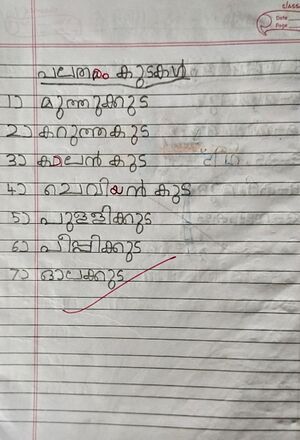 classm
Date
Page
പലതരം കുടകൾ
1) മുത്തുക്കുട
2) കറുത്തകുട
3) കാലൻ കുട
4) ചെവിയൻ കുട
5) പുള്ളിക്കുട
6) പീപ്പിക്കുട
7) ഓലക്കുട